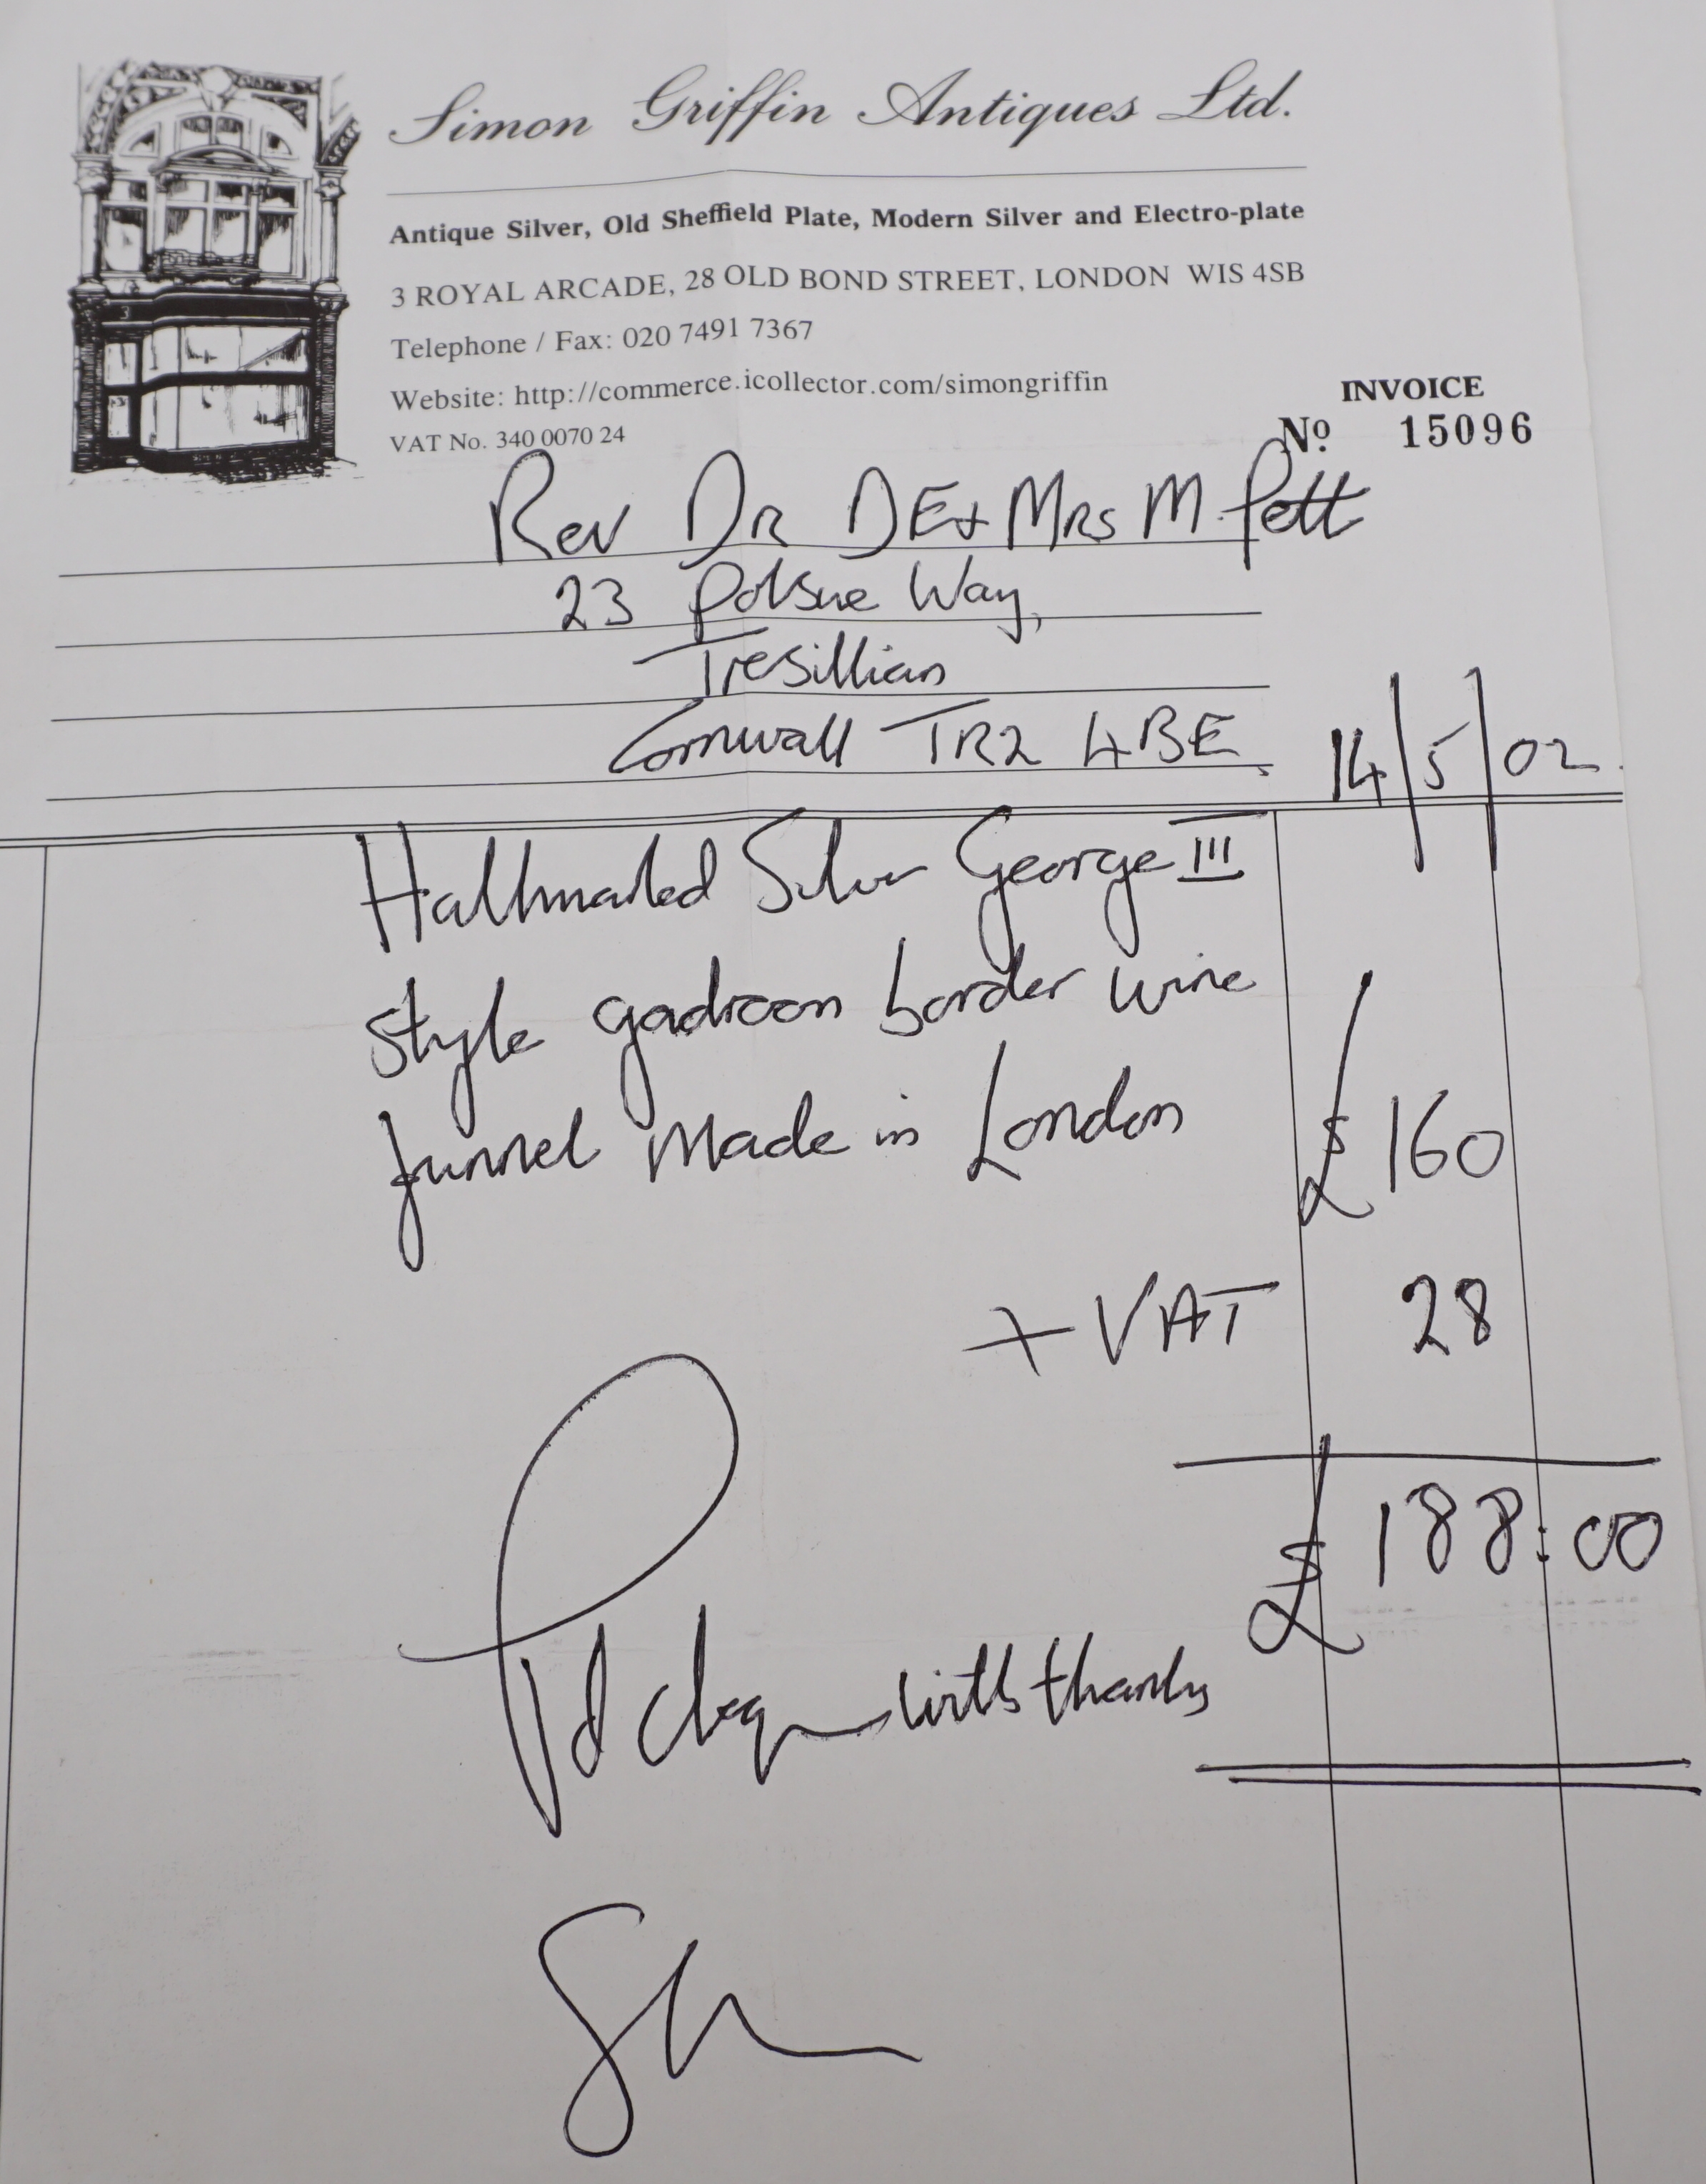 Simon Griffin Antiques Ltd.
Antique Silver, Old Sheffield Plate, Modern Silver and Electro-plate
3 ROYAL ARCADE, 28 OLD BOND STREET, LONDON WIS 4SB
Telephone / Fax: 020 7491 7367
Website: http://commerce.icollector.com/simongriffin
VAT No. 340 0070 24
INVOICE
No 15096
Rev DR DE+ MRS M Pett
23 Polsue Way,
Tresillian
Cornwall TR2 4BE
14/5/02
Hallmarked Silver George III
style gadroon border wine
funnel Made in London £160
+ VAT 28
£188:00
Pd cheque with thanks